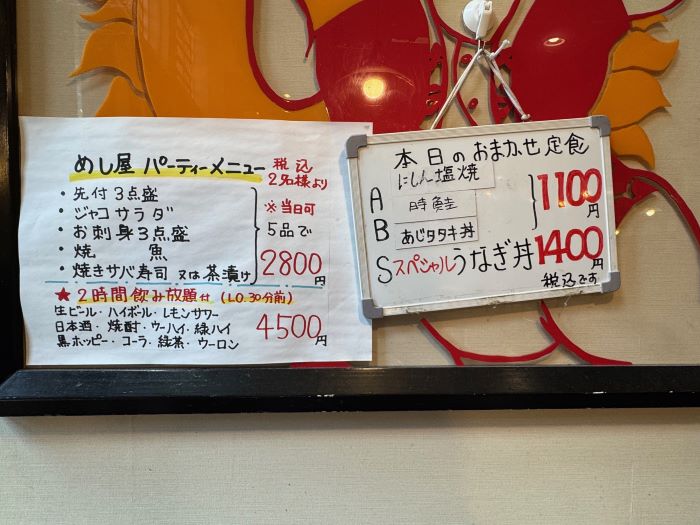 めし屋 パーティーメニュー 税込 2名様より
・先付3点盛
・ジャコサラダ
・お刺身3点盛
・焼 魚
・焼きサバ寿司 又は茶漬け
※当日可
5品で
2800円
★2時間飲み放題付 (L.O.30分前)
生ビール・ハイボール・レモンサワー
日本酒・焼酎・ウーハイ・緑ハイ
黒ホッピー・コーラ・緑茶・ウーロン
4500円
本日のおまかせ定食
A にしん塩焼
時鮭
B あじタタキ丼
1100円
Sスペシャルうなぎ丼 1400円
税込です